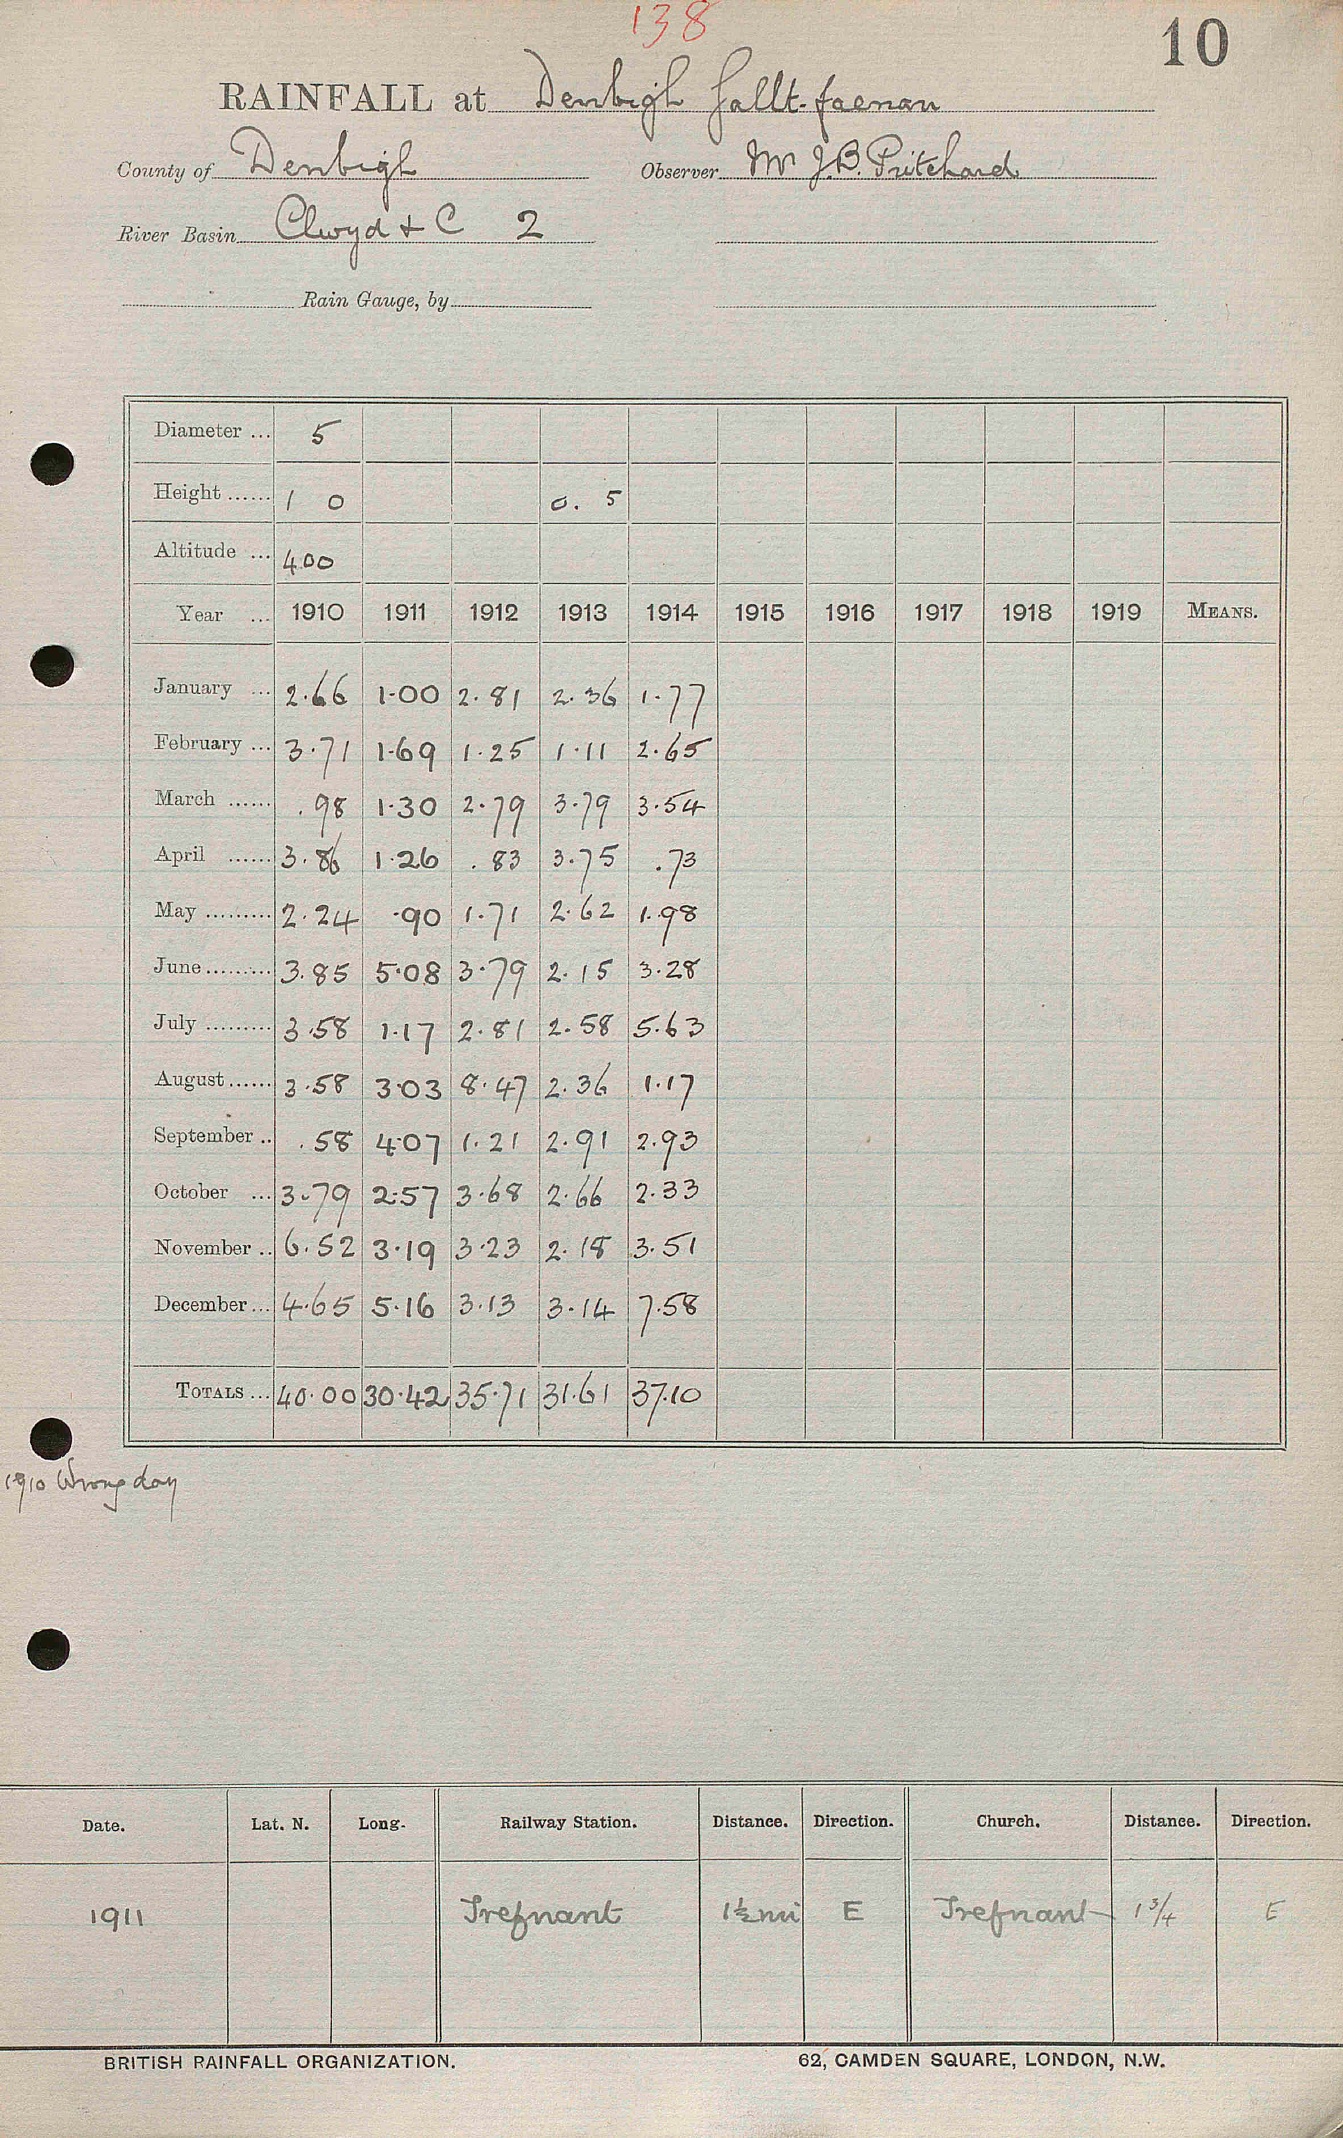 138
10
RAINFALL at Denbigh Gallt-faenan
County of Denbigh Observer Mr J.B. Pritchard
River Basin Clwyd & C 2
Rain Gauge, by
Diameter ... 5
Height ...... 1 0 0. 5
Altitude ... 400
Year ... 1910 1911 1912 1913 1914 1915 1916 1917 1918 1919 MEANS.
January ... 2.66 1.00 2.81 2.36 1.77
February ... 3.71 1.69 1.25 1.11 2.65
March ...... .98 1.30 2.79 3.79 3.54
April ...... 3.86 1.26 .83 3.75 .73
May ......... 2.24 .90 1.71 2.62 1.98
June ......... 3.85 5.08 3.79 2.15 3.28
July ......... 3.58 1.17 2.81 2.58 5.63
August ...... 3.58 3.03 8.47 2.36 1.17
September .. .58 4.07 1.21 2.91 2.93
October ... 3.79 2.57 3.68 2.66 2.33
November .. 6.52 3.19 3.23 2.18 3.51
December ... 4.65 5.16 3.13 3.14 7.58
TOTALS ... 40.00 30.42 35.71 31.61 37.10
1910 Wrong day
Date. Lat. N. Long. Railway Station. Distance. Direction. Church. Distance. Direction.
1911 Trefnant 1½ mi E Trefnant 1¾ E
BRITISH RAINFALL ORGANIZATION. 62, CAMDEN SQUARE, LONDON, N.W.